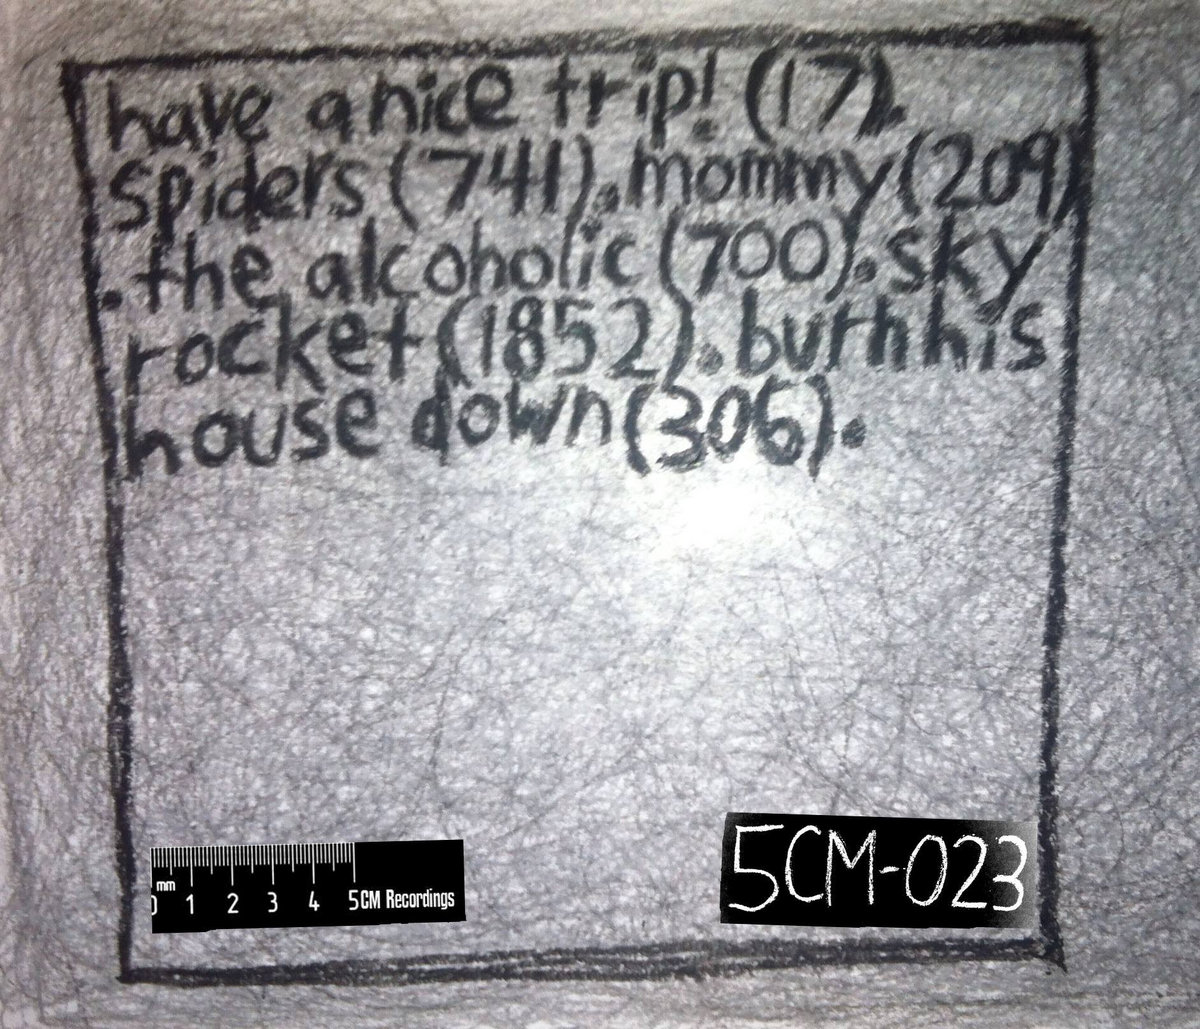 have a nice trip! (17).
spiders (741). mommy (209)
. the alcoholic (700). sky
rocket (1852). burn his
house down (306).
mm
0 1 2 3 4 5CM Recordings
5CM-023